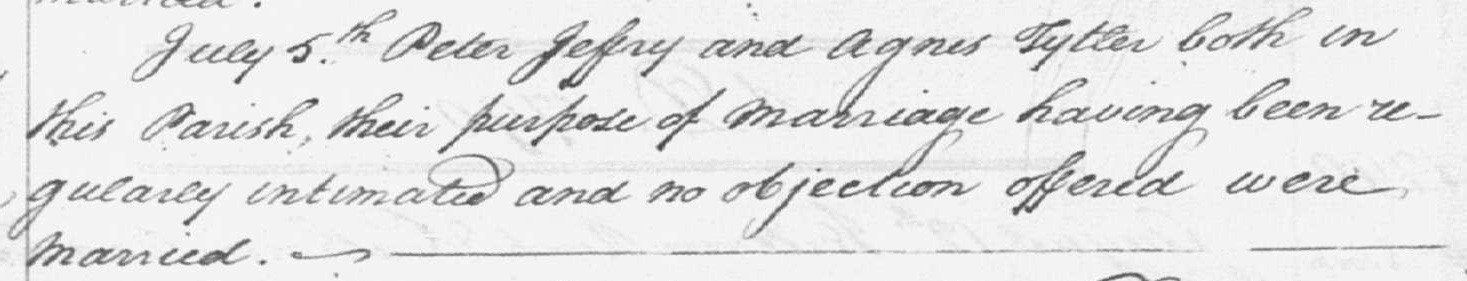 married.
July 5.th Peter Jeffry and Agnes Tytler both in
this Parish, their purpose of Marriage having been re-
gularly intimated and no objection offered were
Married.